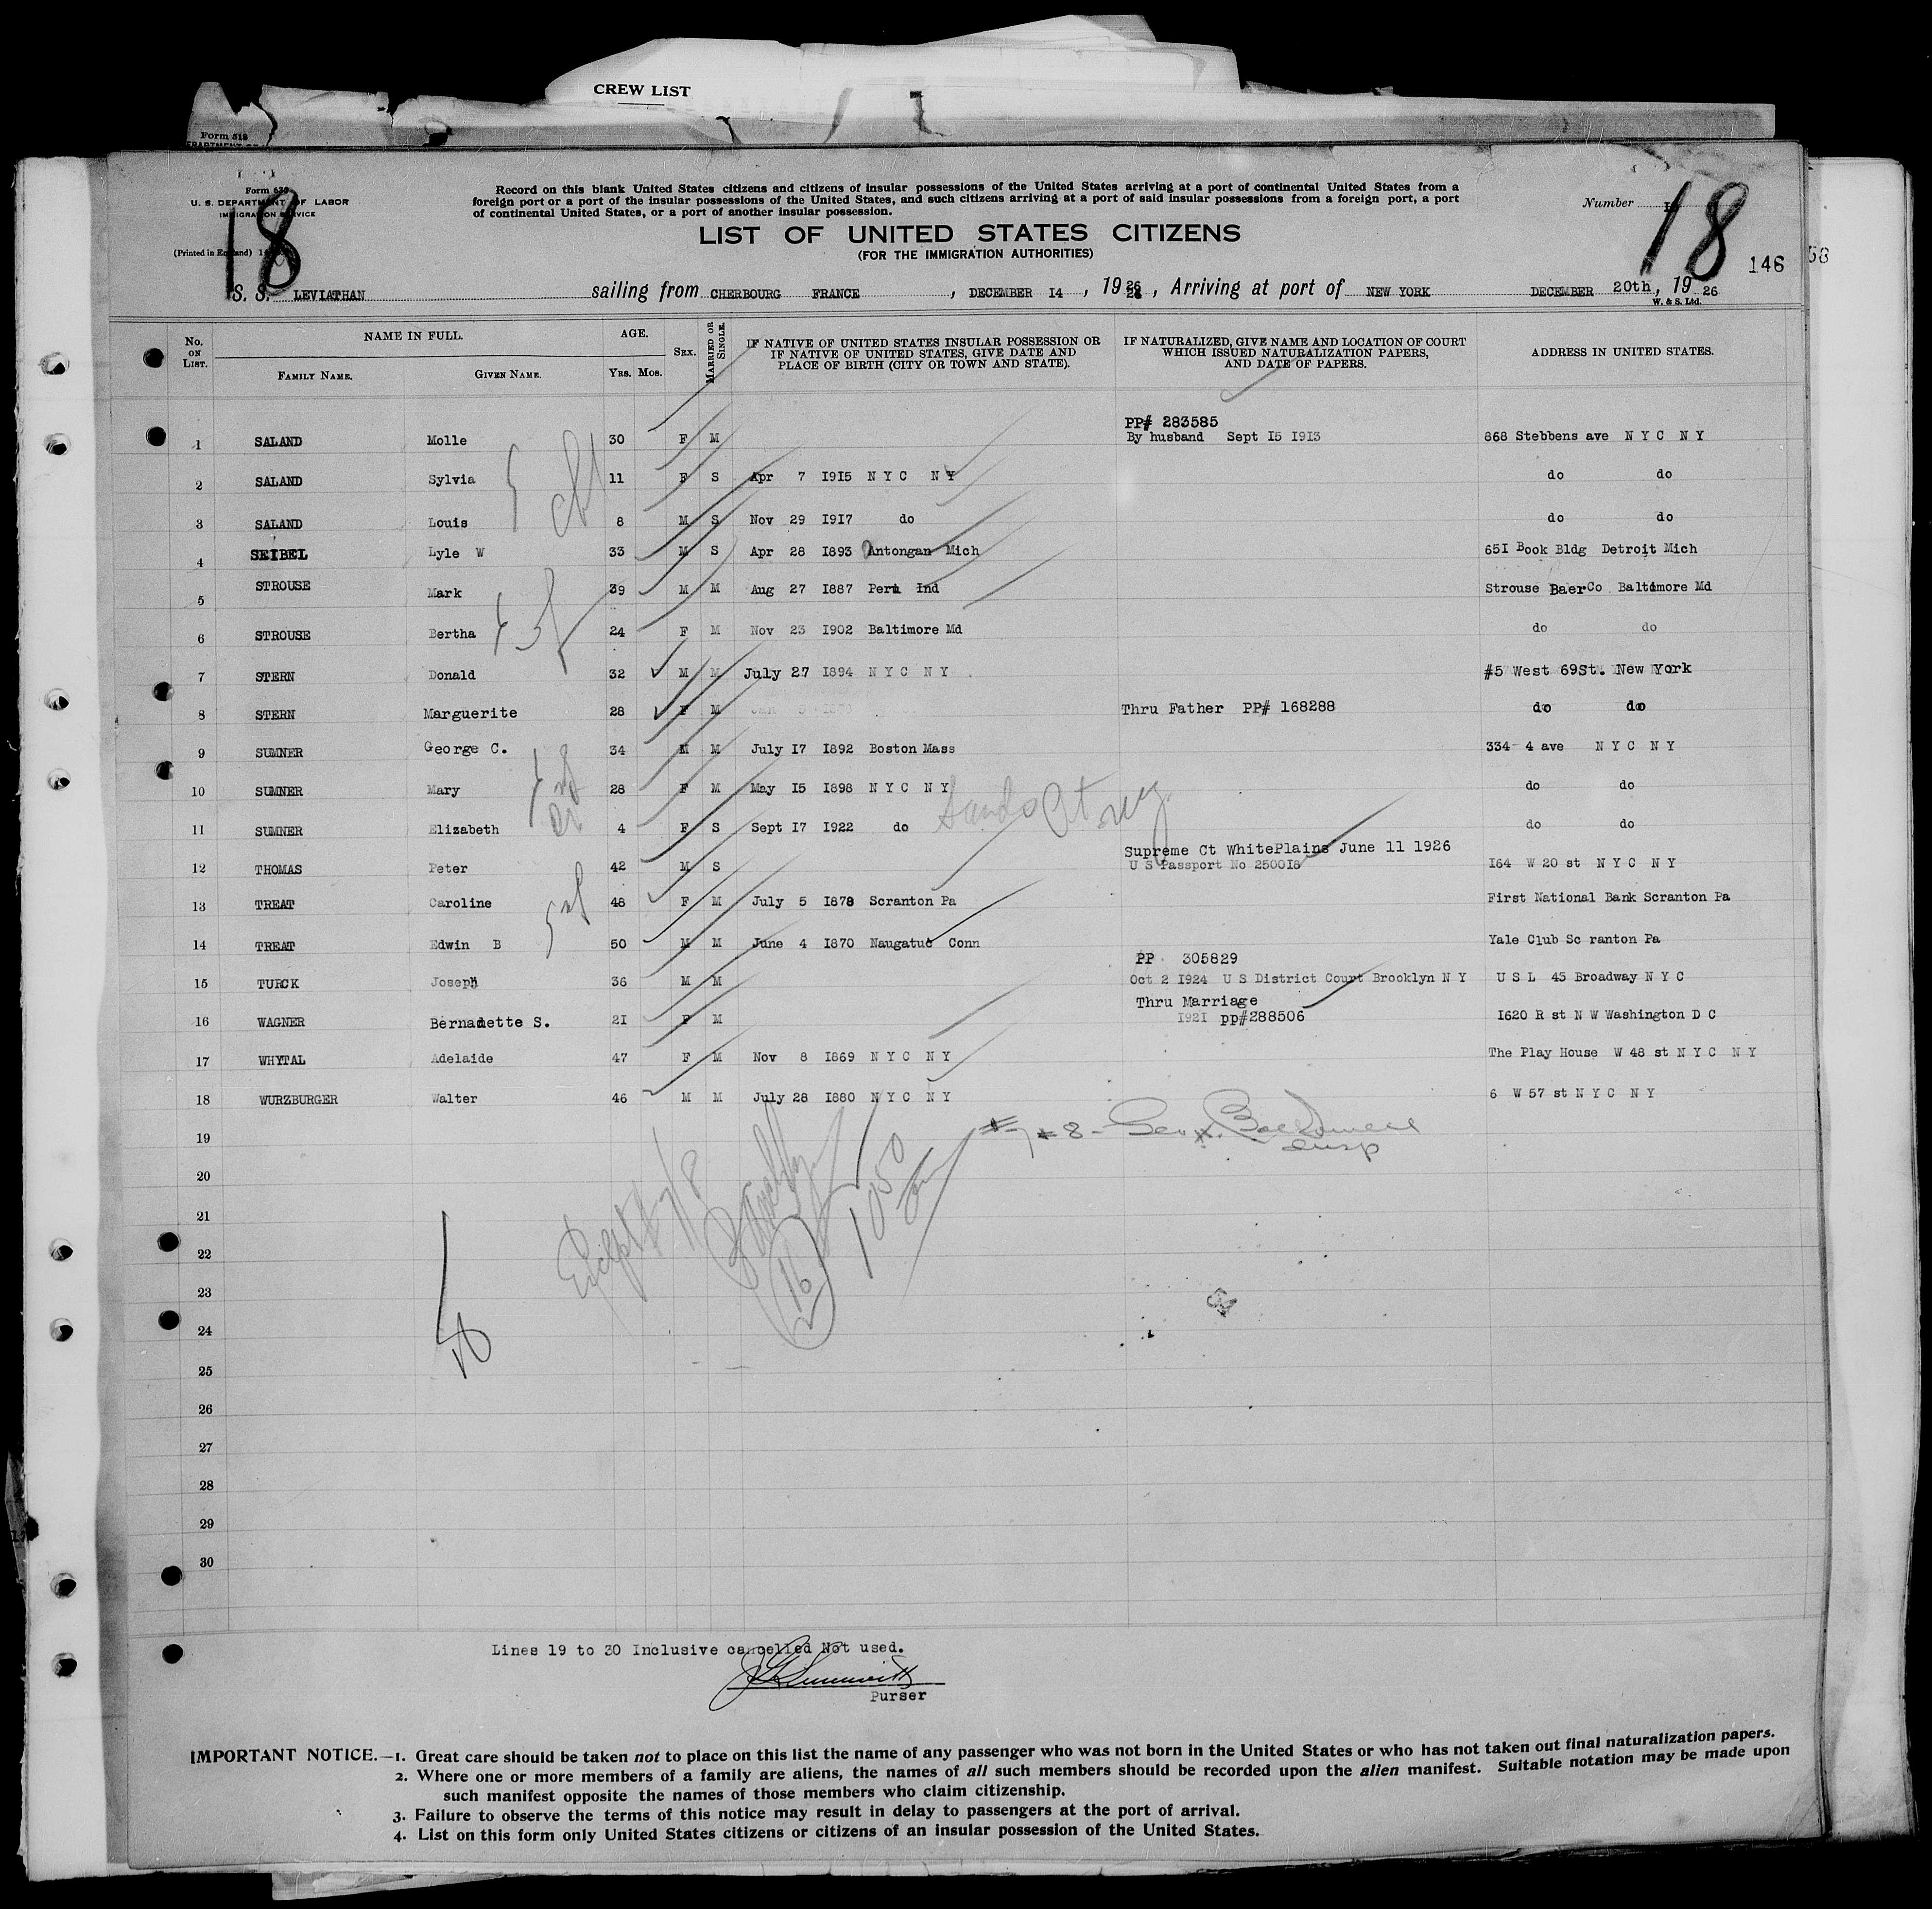 CREW LIST
Form 518
Form 630
U. S. DEPARTMENT OF LABOR
IMMIGRATION SERVICE
(Printed in England)
18
Record on this blank United States citizens and citizens of insular possessions of the United States arriving at a port of continental United States from a
foreign port or a port of the insular possessions of the United States, and such citizens arriving at a port of said insular possessions from a foreign port, a port
of continental United States, or a port of another insular possession.
Number
18
146
LIST OF UNITED STATES CITIZENS
(FOR THE IMMIGRATION AUTHORITIES)
S. S. LEVIATHAN sailing from CHERBOURG FRANCE, DECEMBER 14, 1926, Arriving at port of NEW YORK DECEMBER 20th, 1926
W. & S. Ltd.
No. ON LIST. NAME IN FULL. FAMILY NAME. GIVEN NAME. AGE. YRS. MOS. SEX. MARRIED OR SINGLE. IF NATIVE OF UNITED STATES INSULAR POSSESSION OR IF NATIVE OF UNITED STATES, GIVE DATE AND PLACE OF BIRTH (CITY OR TOWN AND STATE). IF NATURALIZED, GIVE NAME AND LOCATION OF COURT WHICH ISSUED NATURALIZATION PAPERS, AND DATE OF PAPERS. ADDRESS IN UNITED STATES.
PP# 283585
1 SALAND Molle 30 F M By husband Sept 15 1913 868 Stebbens ave N Y C N Y
2 SALAND Sylvia 11 F S Apr 7 1915 N Y C N Y do do
3 SALAND Louis 8 M S Nov 29 1917 do do do
4 SEIBEL Lyle W 33 M S Apr 28 1893 Antongan Mich 651 Book Bldg Detroit Mich
5 STROUSE Mark 39 M M Aug 27 1887 Peru Ind Strouse Baer Co Baltimore Md
6 STROUSE Bertha 24 F M Nov 23 1902 Baltimore Md do do
7 STERN Donald 32 M M July 27 1894 N Y C N Y #5 West 69St. New York
8 STERN Marguerite 28 F M Thru Father PP# 168288 do do
9 SUMNER George C. 34 M M July 17 1892 Boston Mass 334 4 ave N Y C N Y
10 SUMNER Mary 28 F M May 15 1898 N Y C N Y do do
11 SUMNER Elizabeth 4 F S Sept 17 1922 do do do
Supreme Ct WhitePlains June 11 1926
12 THOMAS Peter 42 M S U S Passport No 250018 164 W 20 st N Y C N Y
13 TREAT Caroline 48 F M July 5 1878 Scranton Pa First National Bank Scranton Pa
14 TREAT Edwin B 50 M M June 4 1870 Naugatuc Conn Yale Club Sc ranton Pa
PP 305829
15 TURCK Joseph 36 M M Oct 2 1924 U S District Court Brooklyn N Y U S L 45 Broadway N Y C
Thru Marriage
16 WAGNER Bernadette S. 21 F M 1921 pp#288506 1620 R st N W Washington D C
17 WHYTAL Adelaide 47 F M Nov 8 1869 N Y C N Y The Play House W 48 st N Y C N Y
18 WURZBURGER Walter 46 M M July 28 1880 N Y C N Y 6 W 57 st N Y C N Y
19
20
21
22
23
24
25
26
27
28
29
30
Lines 19 to 30 Inclusive cancelled Not used.
Purser
IMPORTANT NOTICE.—1. Great care should be taken not to place on this list the name of any passenger who was not born in the United States or who has not taken out final naturalization papers.
2. Where one or more members of a family are aliens, the names of all such members should be recorded upon the alien manifest. Suitable notation may be made upon
such manifest opposite the names of those members who claim citizenship.
3. Failure to observe the terms of this notice may result in delay to passengers at the port of arrival.
4. List on this form only United States citizens or citizens of an insular possession of the United States.